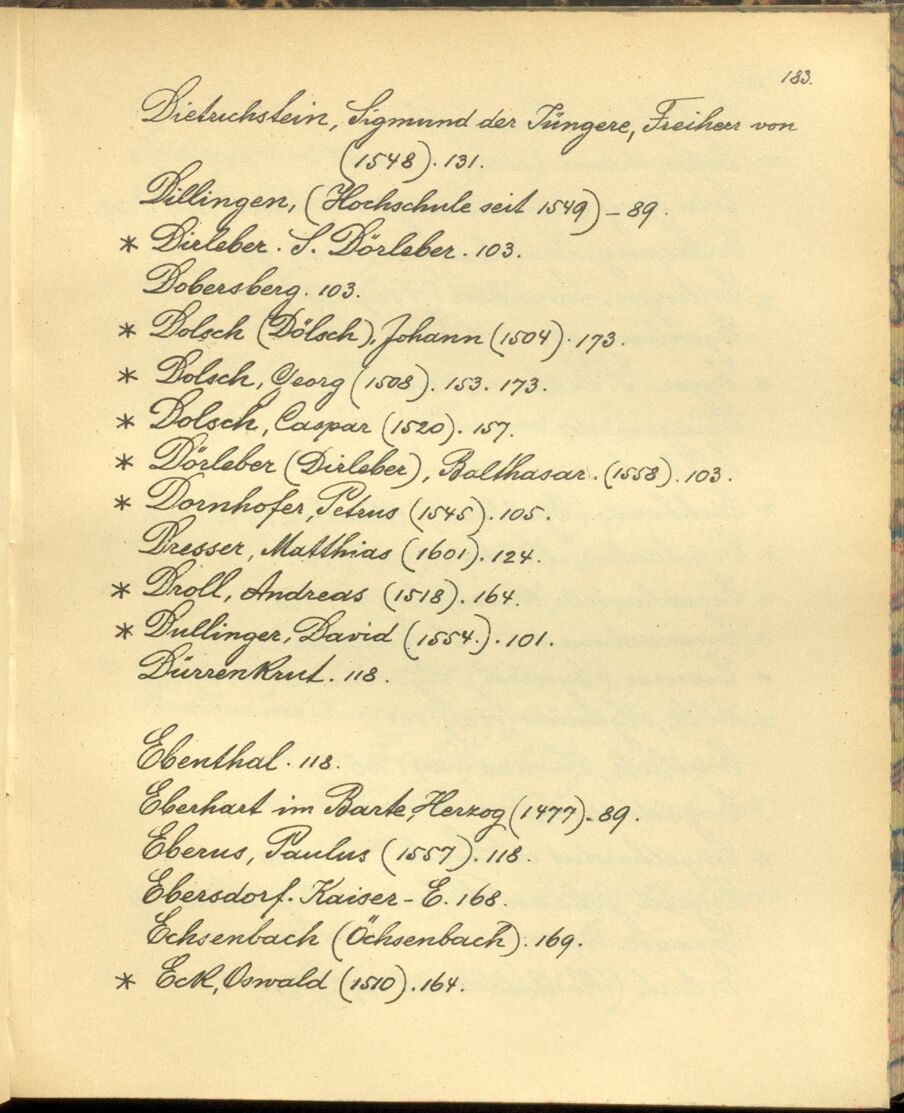 183.
Dietrichstein, Sigmund der Jüngere, Freiherr von
(1548). 131.
Dillingen, (Hochschule seit 1549) – 89.
* Dirleber. S. Dörleber. 103.
Dobersberg. 103.
* Dolsch (Dölsch), Johann (1504). 173.
* Dolsch, Georg (1508). 153. 173.
* Dolsch, Caspar (1520). 157.
* Dörleber (Dirleber), Balthasar. (1558). 103.
* Dornhofer, Petrus (1545). 105.
Dresser, Matthias (1601). 124.
* Droll, Andreas (1518). 164.
* Dullinger, David (1554.). 101.
Dürrenkrut. 118.
Ebenthal. 118.
Eberhart im Barte, Herzog (1477). 89.
Eberus, Paulus (1557). 118.
Ebersdorf. Kaiser-E. 168.
Echsenbach (Öchsenbach). 169.
* Eck, Oswald (1510). 164.